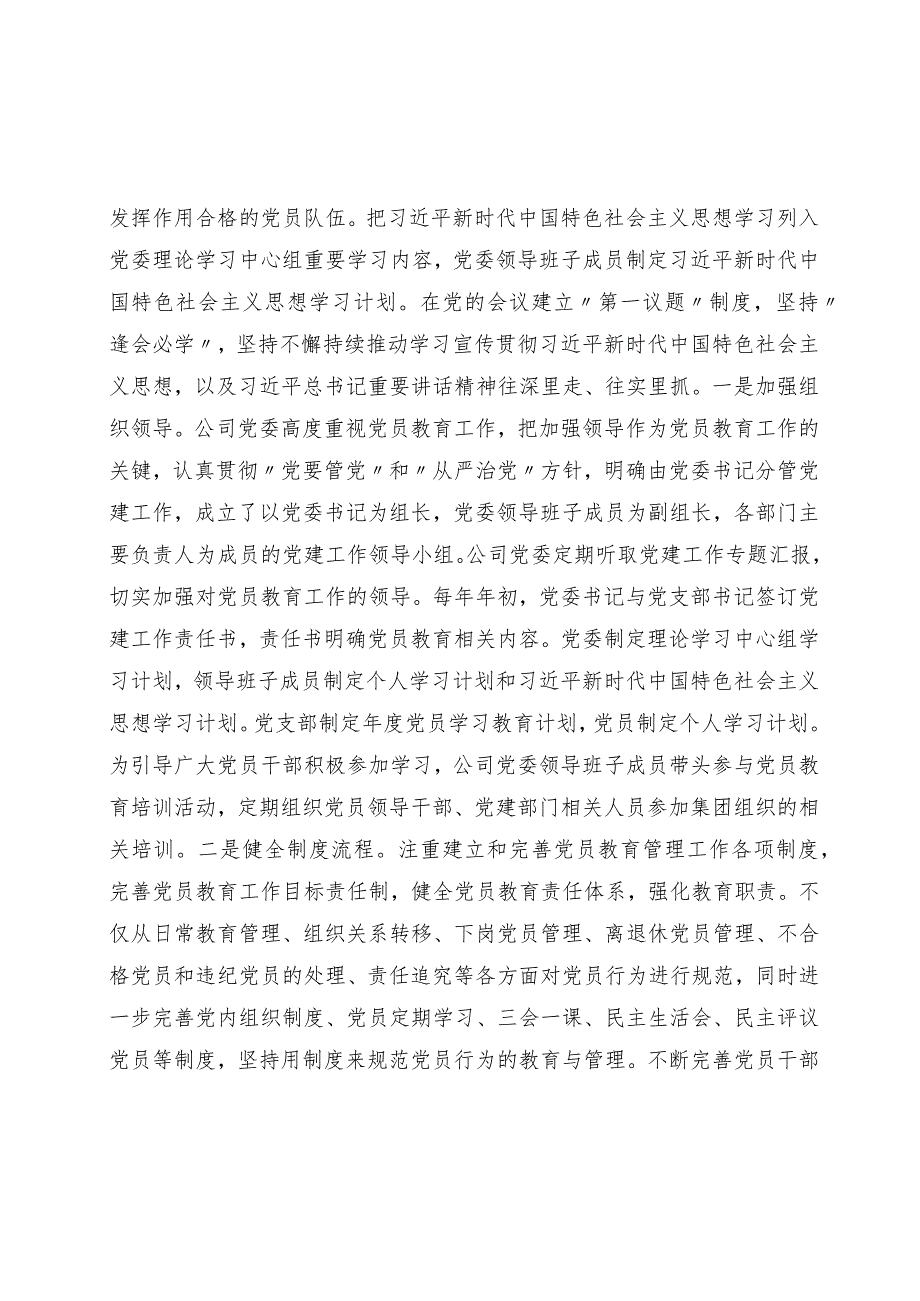 发挥作用合格的党员队伍。把习近平新时代中国特色社会主义思想学习列入
党委理论学习中心组重要学习内容，党委领导班子成员制定习近平新时代中
国特色社会主义思想学习计划。在党的会议建立〃第一议题〃制度，坚持〃
逢会必学〃，坚持不懈持续推动学习宣传贯彻习近平新时代中国特色社会主
义思想，以及习近平总书记重要讲话精神往深里走、往实里抓。一是加强组
织领导。公司党委高度重视党员教育工作，把加强领导作为党员教育工作的
关键，认真贯彻〃党要管党〃和〃从严治党〃方针，明确由党委书记分管党
建工作，成立了以党委书记为组长，党委领导班子成员为副组长，各部门主
要负责人为成员的党建工作领导小组。公司党委定期听取党建工作专题汇报，
切实加强对党员教育工作的领导。每年年初，党委书记与党支部书记签订党
建工作责任书，责任书明确党员教育相关内容。党委制定理论学习中心组学
习计划，领导班子成员制定个人学习计划和习近平新时代中国特色社会主义
思想学习计划。党支部制定年度党员学习教育计划，党员制定个人学习计划。
为引导广大党员干部积极参加学习，公司党委领导班子成员带头参与党员教
育培训活动，定期组织党员领导干部、党建部门相关人员参加集团组织的相
关培训。二是健全制度流程。注重建立和完善党员教育管理工作各项制度，
完善党员教育工作目标责任制，健全党员教育责任体系，强化教育职责。不
仅从日常教育管理、组织关系转移、下岗党员管理、离退休党员管理、不合
格党员和违纪党员的处理、责任追究等各方面对党员行为进行规范，同时进
一步完善党内组织制度、党员定期学习、三会一课、民主生活会、民主评议
党员等制度，坚持用制度来规范党员行为的教育与管理。不断完善党员干部